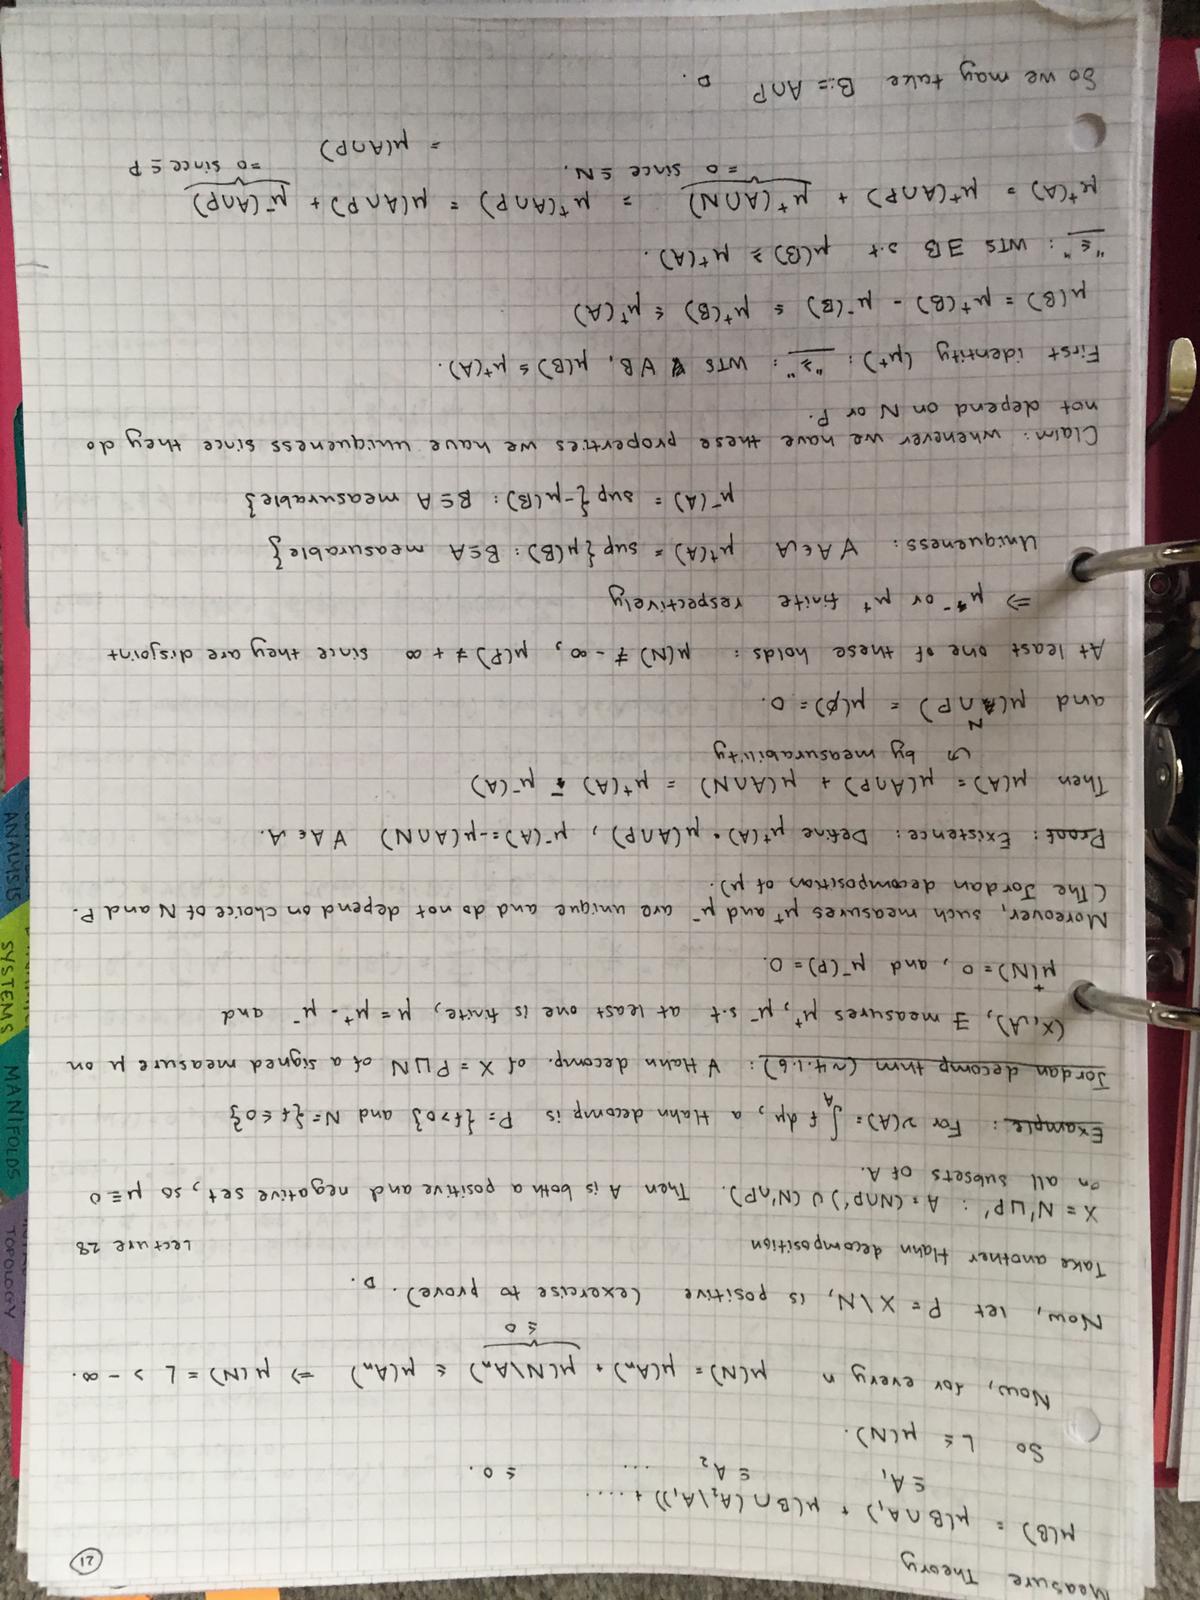 Measure Theory
21
μ(B) = μ(B∩A₁) + μ(B∩(A₂\A₁)) + ....
⊆ A₁ ⊆ A₂ ... ≤ 0.
So L ≤ μ(N).
Now, for every n μ(N) = μ(Aₙ) + μ(N\Aₙ) ≤ μ(Aₙ) ⇒ μ(N) = L > -∞.
≤ 0
Now, let P = X\N, is positive (exercise to prove). □.
Take another Hahn decomposition Lecture 28
X = N'⊔P' : A = (N∩P') ∪ (N'∩P). Then A is both a positive and negative set, so μ ≡ 0
on all subsets of A.
Example: For ν(A) = ∫_A f dμ, a Hahn decomp is P = {f>0} and N = {f≤0}
Jordan decomp thm (~4.1.6): ∀ Hahn decomp. of X = P⊔N of a signed measure μ on
(X,𝒜), ∃ measures μ⁺, μ⁻ s.t at least one is finite, μ = μ⁺ - μ⁻ and
μ⁺(N) = 0, and μ⁻(P) = 0.
Moreover, such measures μ⁺ and μ⁻ are unique and do not depend on choice of N and P.
(The Jordan decomposition of μ).
Proof: Existence: Define μ⁺(A) = μ(A∩P), μ⁻(A) = -μ(A∩N) ∀A∈𝒜.
Then μ(A) = μ(A∩P) + μ(A∩N) = μ⁺(A) - μ⁻(A)
↳ by measurability
and μ(N∩P) = μ(∅) = 0.
At least one of these holds: μ(N) ≠ -∞, μ(P) ≠ +∞ since they are disjoint
⇒ μ⁻ or μ⁺ finite respectively
Uniqueness: ∀A∈𝒜 μ⁺(A) = sup{μ(B): B⊆A measurable}
μ⁻(A) = sup{-μ(B): B⊆A measurable}
Claim: whenever we have these properties we have uniqueness since they do
not depend on N or P.
First identity (μ⁺): "≥": WTS ∀B, μ(B) ≤ μ⁺(A).
μ(B) = μ⁺(B) - μ⁻(B) ≤ μ⁺(B) ≤ μ⁺(A)
"≤": WTS ∃B s.t μ(B) ≥ μ⁺(A).
μ⁺(A) = μ⁺(A∩P) + μ⁺(A∩N) = μ⁺(A∩P) = μ(A∩P) + μ⁻(A∩P)
=0 since ⊆N. =0 since ⊆P
= μ(A∩P)
So we may take B := A∩P □.
ANALYSIS
SYSTEMS
MANIFOLDS
TOPOLOGY